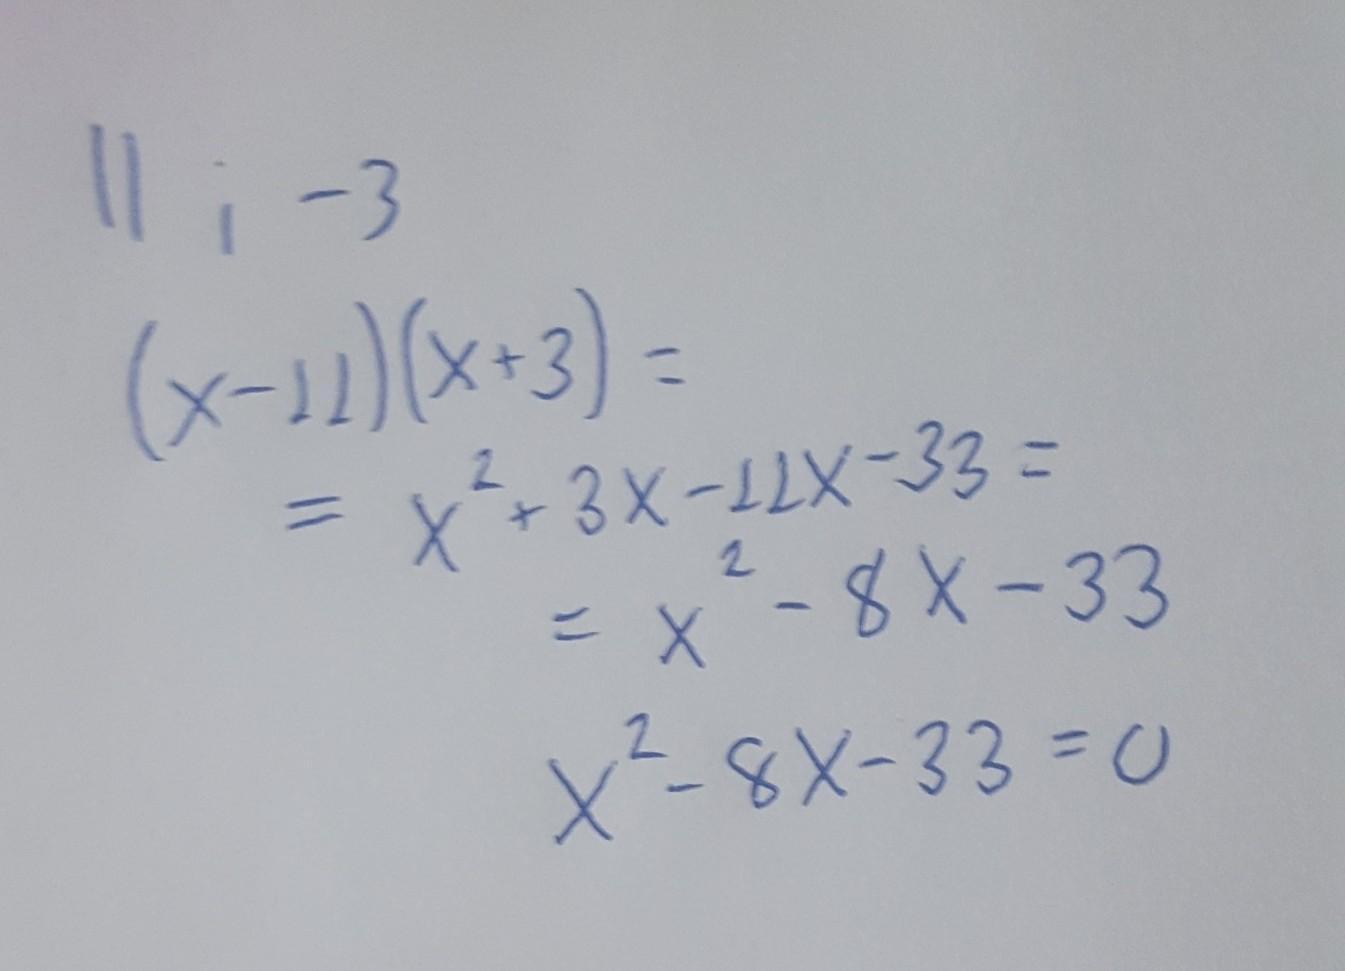 11 ; -3
(x-11)(x+3) =
= x² + 3x - 11x - 33 =
= x² - 8x - 33
x² - 8x - 33 = 0